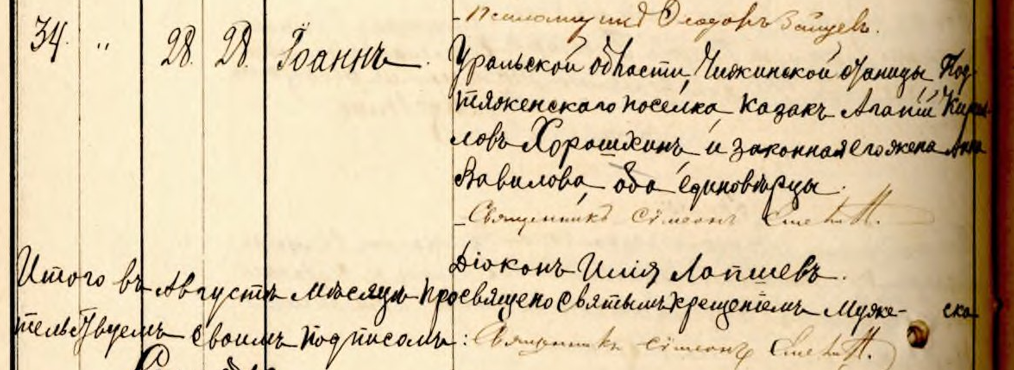 Псаломщикъ Ѳеодоръ Зайцевъ.
34. " 28. 28. Іоаннъ. Уральской области Чижинской станицы Под-
тяженскаго поселка, казакъ Агапій Кирил-
ловъ Хорошхинъ и законная его жена Анна
Вавилова, оба единовѣрцы.
Священникъ Симеонъ
Діаконъ Илія Лапшевъ.
Итого въ Августѣ мѣсяцѣ просвящено святымъ крещеніемъ Муже- ска
тельствуемъ своимъ подписомъ: Священникъ Симеонъ